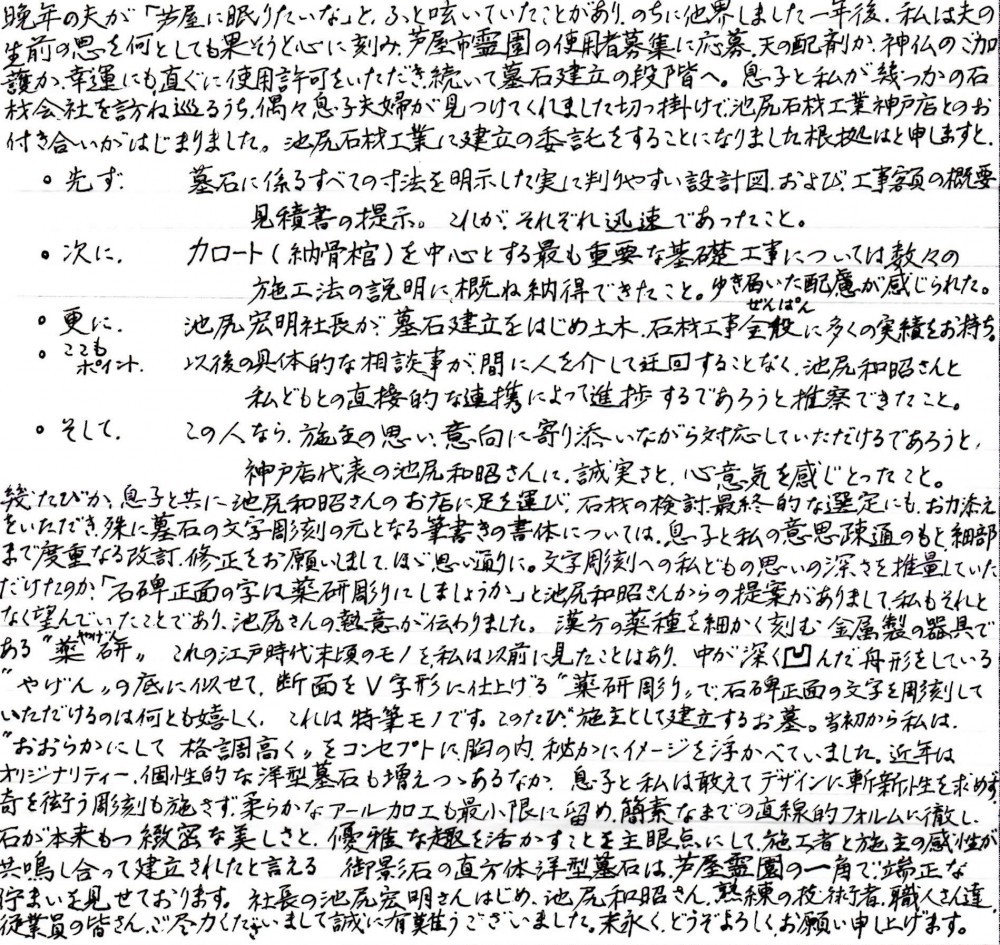 晩年の夫が「芦屋に眠りたいな」と、ふと呟いていたことがあり、のちに他界しました一年後、私は夫の
生前の思を何としても果そうと心に刻み、芦屋市霊園の使用者募集に応募、天の配剤か、神仏のご加
護か、幸運にも直ぐに使用許可をいただき、続いて墓石建立の段階へ。息子と私が幾つかの石
材会社を訪ね巡るうち、偶々息子夫婦が見つけてくれました切っ掛けで、池尻石材工業神戸店とのお
付き合いがはじまりました。池尻石材工業に建立の委託をすることになりました根拠はと申しますと、
○先ず、 墓石に係るすべての寸法を明示した実に判りやすい設計図、および、工事額の概要
見積書の提示。これが、それぞれ迅速であったこと。
○次に、 カロート(納骨棺)を中心とする最も重要な基礎工事については数々の
施工法の説明に、概ね納得できたこと。ゆき届いた配慮が感じられた。
○更に、 池尻宏明社長が、墓石建立をはじめ土木、石材工事全般(ぜんぱん)に多くの実績をお持ち。
○ここもポイント、 以後の具体的な相談事が、間に人を介して迂回することなく、池尻和昭さんと
私どもとの直接的な連携によって進捗するであろうと推察できたこと。
○そして、 この人なら、施主の思い、意向に寄り添いながら対応していただけるであろうと、
神戸店代表の池尻和昭さんに、誠実さと、心意気を感じとったこと。
幾たびか、息子と共に池尻和昭さんのお店に足を運び、石材の検討、最終的な選定にも、お力添え
をいただき、殊に墓石の文字彫刻の元となる筆書きの書体については、息子と私の意思疎通のもと、細部
まで度重なる改訂、修正をお願いしまして、ほゞ思い通りに。文字彫刻への私どもの思いの深さを推量していた
だけたのか、「石碑正面の字は薬研彫りにしましょうか」と池尻和昭さんからの提案がありまして、私もそれと
なく望んでいたことであり、池尻さんの熱意が伝わりました。漢方の薬種を細かく刻む金属製の器具で
ある〝薬研(やげん)〟これの江戸時代末頃のモノを、私は以前に見たことはあり、中が深く凹んだ舟形をしている
〝やげん〟の底に似せて、断面をV字形に仕上げる〝薬研彫り〟で、石碑正面の文字を彫刻して
いただけるのは何とも嬉しく、これは特筆モノです。このたび施主として建立するお墓。当初から私は、
〝おおらかにして 格調高く〟をコンセプトに、胸の内、秘かにイメージを浮かべていました。近年は
オリジナリティー、個性的な洋型墓石も増えつゝあるなか、息子と私は敢えてデザインに斬新性を求めず
奇を衒う彫刻も施さず、柔らかなアール加工も最小限に留め、簡素なまでの直線的フォルムに徹し、
石が本来もつ緻密な美しさと、優雅な趣を活かすことを主眼点にして、施工者と施主の感性が
共鳴し合って建立されたと言える 御影石の直方体洋型墓石は、芦屋霊園の一角で、端正な
佇まいを見せております。社長の池尻宏明さんはじめ、池尻和昭さん、熟練の技術者、職人さん達、
従業員の皆さん、ご尽力くださいまして誠に有難うございました。末永く、どうぞよろしくお願い申し上げます。